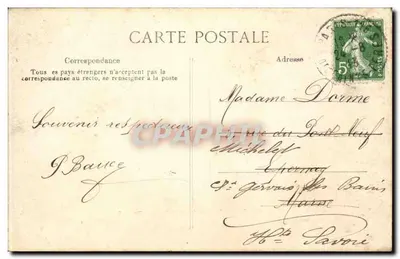 CARTE POSTALE
Correspondance
Tous les pays étrangers n'acceptent pas la
correspondance au recto, se renseigner à la poste
Adresse
5
Madame Dorme
rue du Pont Neuf
Michelet
Epernay
St Gervais les Bains
Marne
Hte Savoie
Souvenir respectueux
CPARAMA